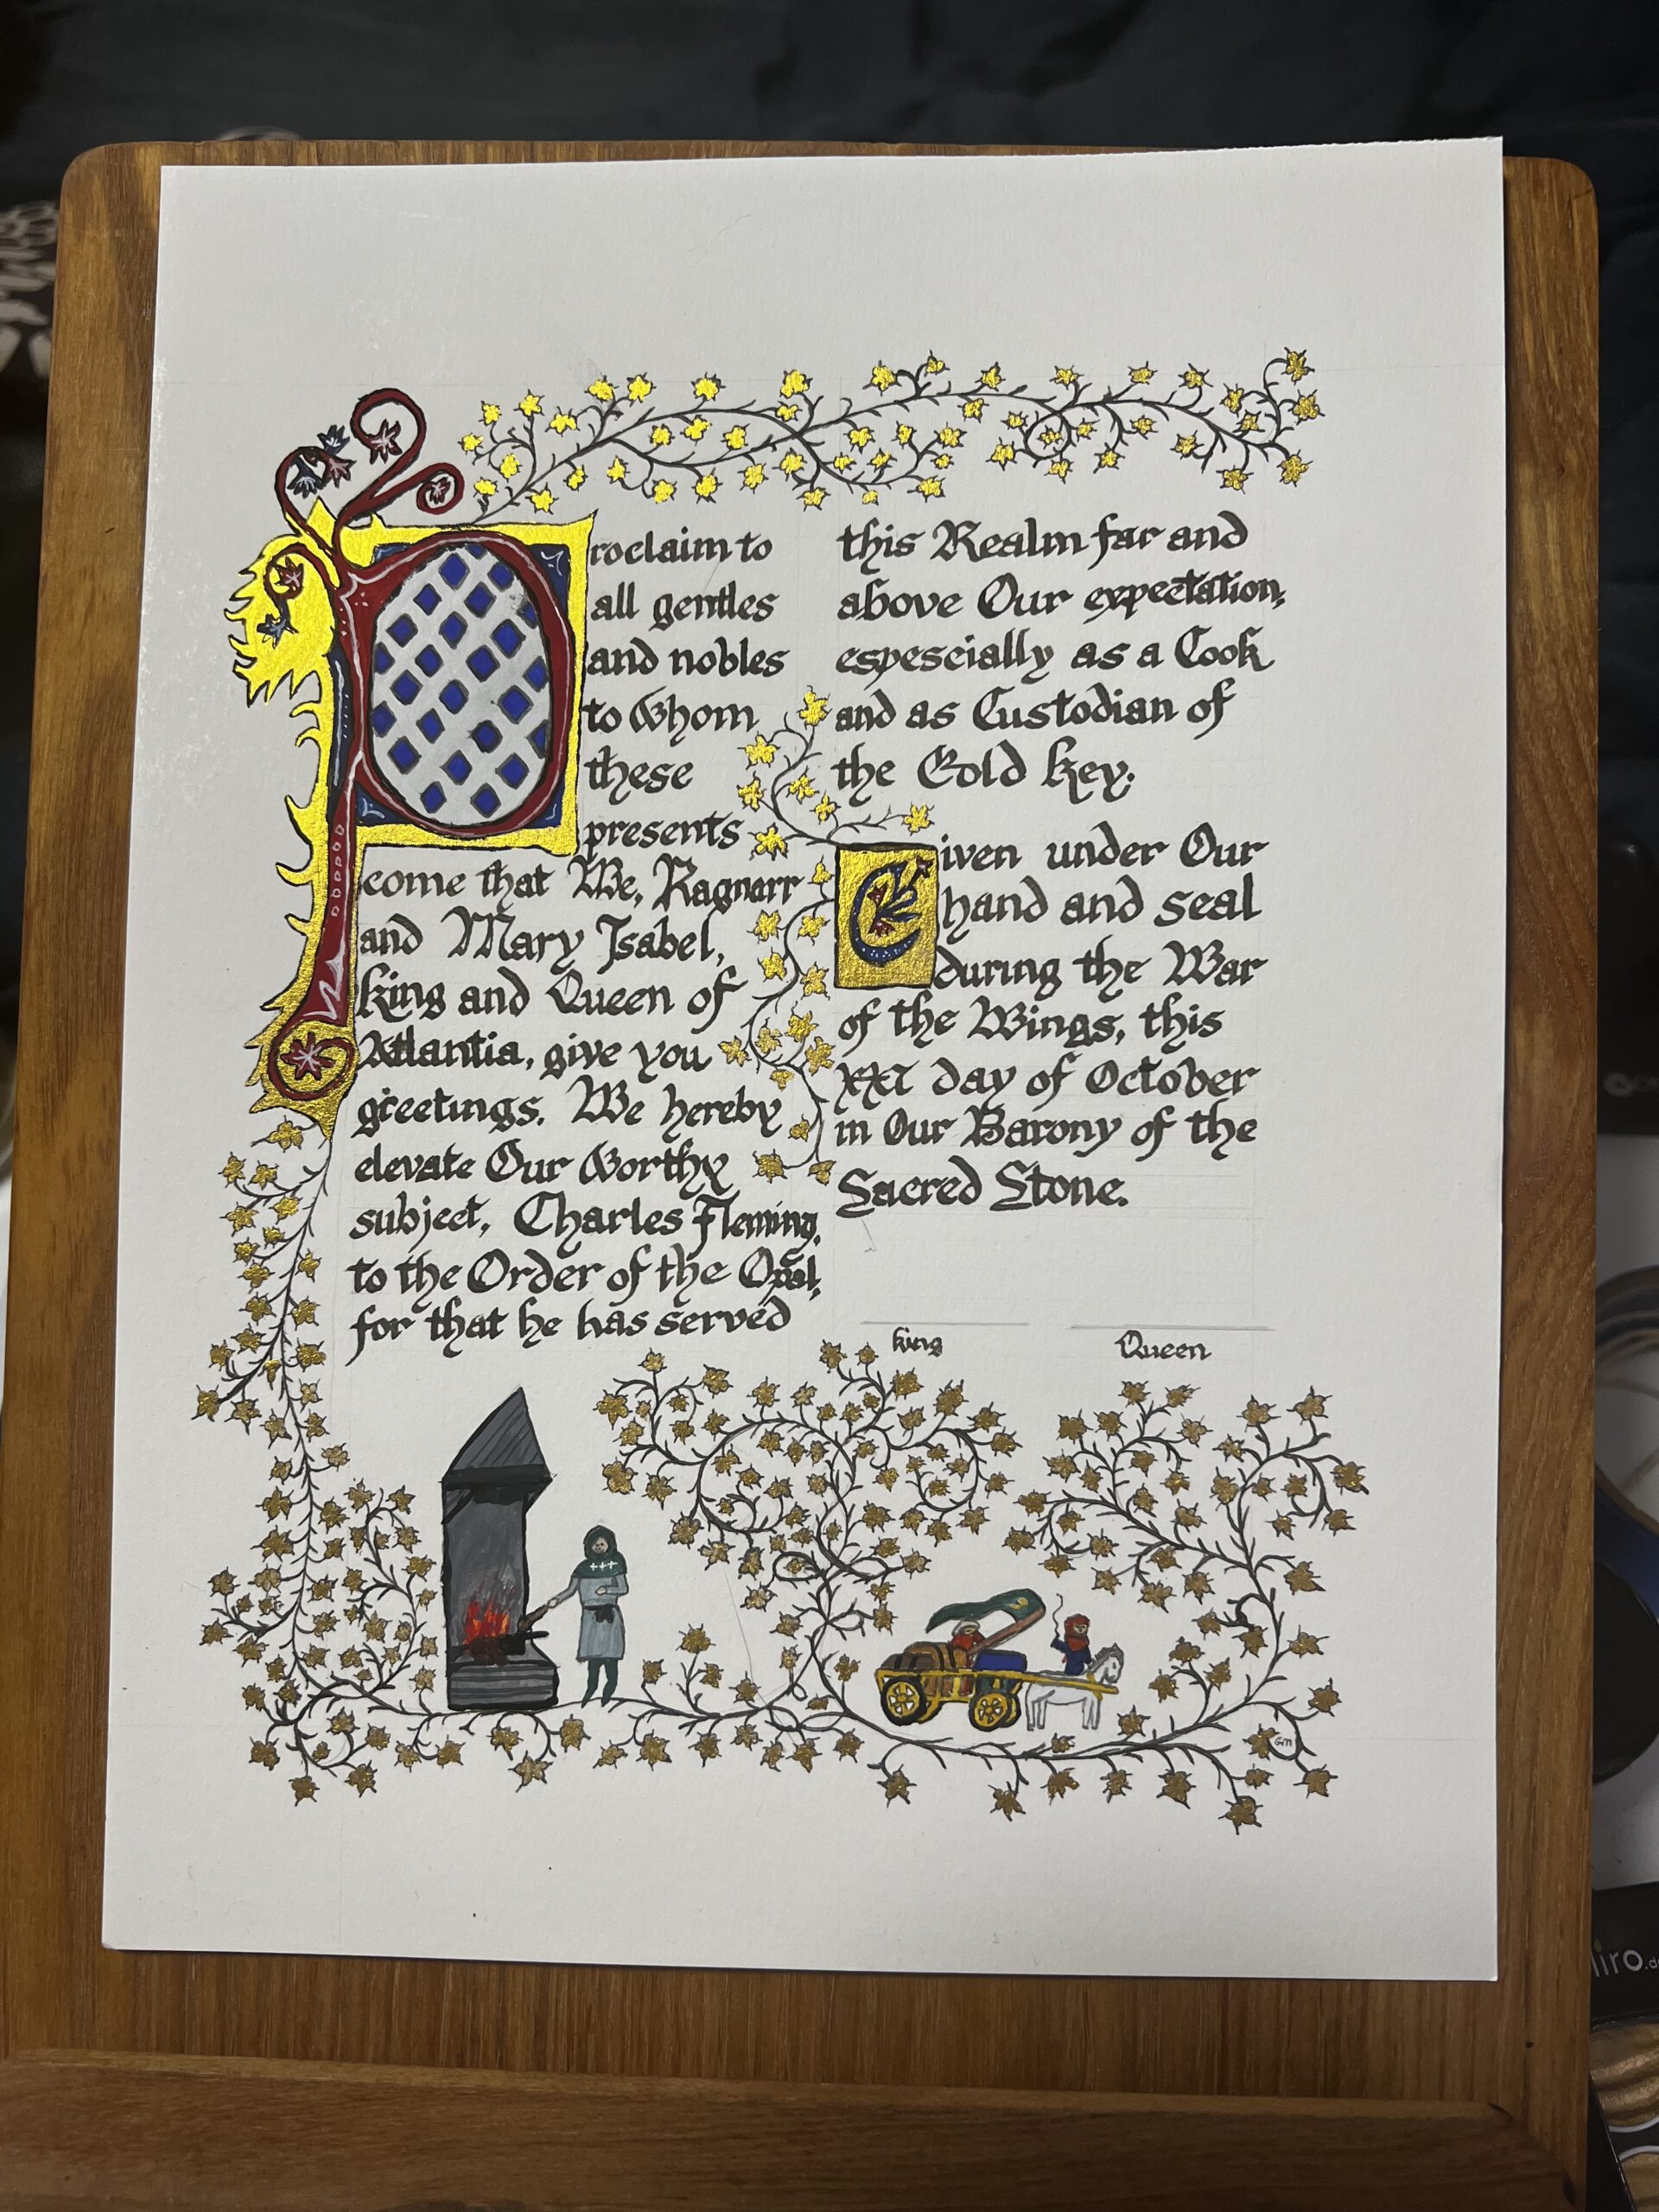 Proclaim to
all gentles
and nobles
to Whom
these
presents
come that We, Ragnarr
and Mary Isabel,
King and Queen of
Atlantia, give you
greetings. We hereby
elevate Our Worthy
subject, Charles Fleming,
to the Order of the Opal,
for that he has served
this Realm far and
above Our expectation,
espescially as a Cook
and as Custodian of
the Gold Key.
Given under Our
hand and seal
during the War
of the Wings, this
XXI day of October
in Our Barony of the
Sacred Stone.
King
Queen
GM
iro